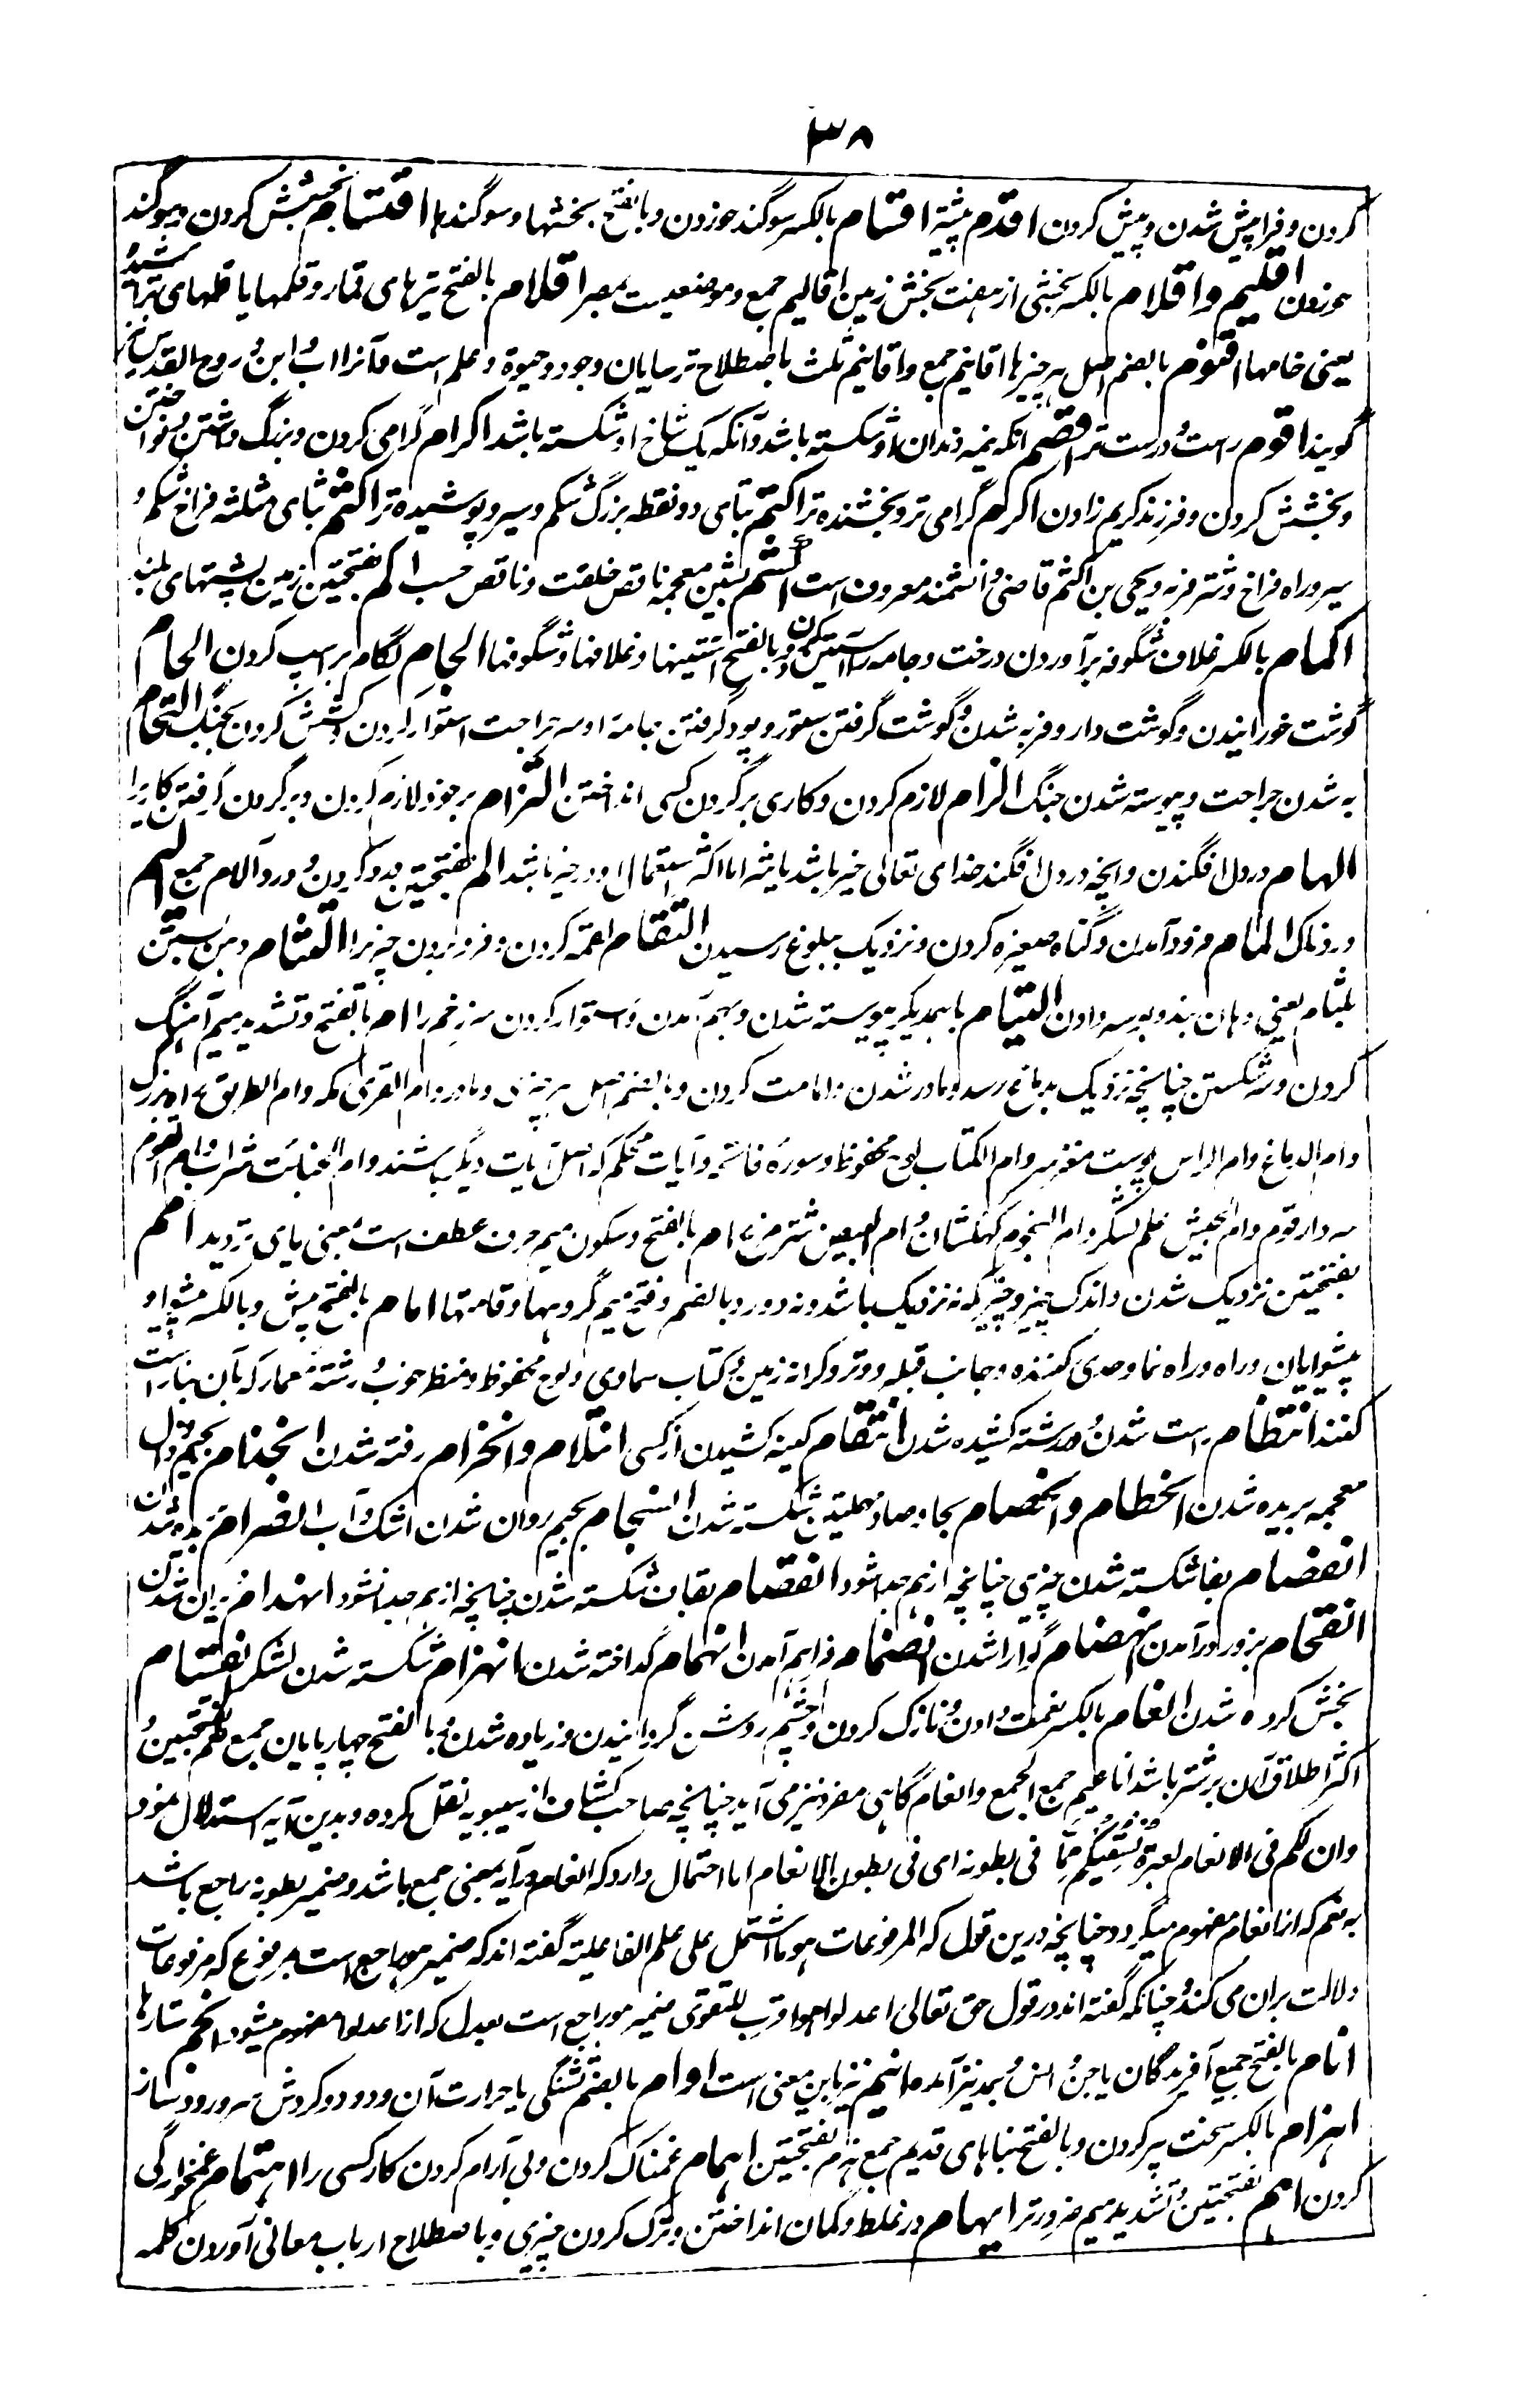 ۳۸
کردن و فرا پیش شدن و پیش کردن اقدم پیشتر اقسام بالکسر سوگند خوردن و بالفتح بخشها و سوگندها اقتسام بخشش کردن و سوگند
خوردن اقلیم و اقلام بالکسر بخشی از هفت بخش زمین اقالیم جمع و موضعیست بمصر اقلام بالفتح تیرهای قمار و قلمها یا قلمهای تراشیده
یعنی خامها اقنوم بالضم اصل هر چیز ها اقانیم جمع و اقانیم ثلث باصطلاح ترسایان وجود و حیوة و علم است و آنرا اب و ابن و روح القدس نیز
گویند اقوم راست و درست تر اقصم انکه نیمه دندان او شکسته باشد و آنکه یک شاخ او شکسته باشد اکرام گرامی کردن و بزرگ داشتن و نواختن
و بخشش کردن و فرزند کریم زادن اکرم گرامی تر و بخشنده تر اکتم بتای دو نقطه بزرگ شکم و سیر و پوشیده تر اکثم بثای مثلثه فراخ شکم و
سیر و راه فراخ و شتر فربه و یحیی بن اکثم قاضی و دانشمند معروف است اکشم بشین معجمه ناقص خلقت و ناقص حسب اکم بفتحتین زمین پشتهای بلند
اکمام بالکسر غلاف شگوفه برآوردن درخت و جامه را آستین کردن و بالفتح آستینها و غلافها و شگوفها الجام لگام بر اسپ کردن الحام
گوشت خورانیدن و گوشت دار و فربه شدن و گوشت گرفتن ستور و پود گرفتن جامه و سر جراحت استوار کردن و کشش کردن بجنگ التحام
به شدن جراحت و پیوسته شدن جنگ الزام لازم کردن و کاری بر گردن کسی انداختن التزام بر خود لازم کردن و بر گردن گرفتن کاریرا
الهام در دل افگندن و انچه در دل افگند خدای تعالی خیر باشد یا شر اما اکثر استعمال او در خیر باشد الم بفتحتین درد کردن و درد آلام جمع الیم
دردناک المام فرود آمدن و گناه صغیره کردن و نزدیک ببلوغ رسیدن التقام لقمه کردن و فرو بردن چیزیرا التثام دهن بستن
بلثام یعنی دهان بند و بوسه دادن التیام با همدیگر پیوسته شدن و بهم آمدن و استوار کردن سر زخم را ام بالفتح و تشدید میم آهنگ
کردن و سر شکستن چنانچه نزدیک بدماغ رسد و مادر شدن و امامت کردن و بالضم اصل هر چیزی و مادر و ام القری مکه و ام الطریق راه بزرگ
و ام الدماغ و ام الراس پوست مغز سر و ام الکتاب لوح محفوظ و سوره فاتحه و آیات محکم که اصل آیات دیگر باشند و ام الخبائث شراب و ام القوم
سردار قوم و ام الجیش علم لشکر و ام النجوم کهکشان و ام البیض شتر مرغ ام بالفتح و سکون میم حرف عطف است بمعنی یای تردید امم
بفتحتین نزدیک شدن و اندک چیز و چیزیکه نه نزدیک باشد و نه دور و بالضم و فتح میم گروهها و قامتها امام بالفتح پیش و بالکسر پیشوا و
پیشوایان و راه و راه نما و حدی کننده و جانب قبله و وتر و کرانه زمین و کتاب سماوی و لوح محفوظ و منظر خوب و رشته معمار که بآن بنا راست
کنند انتظام راست شدن و در رشته کشیده شدن انتقام کینه کشیدن از کسی انثلام و انخرام رفته شدن انجذام بجیم و ذال
معجمه بریده شدن انحطام و انحصام بحا و صاد مهملتین شکسته شدن انسجام بجیم روان شدن اشک و آب انصرام بریده شدن
انفصام بفا شکسته شدن چیزی چنانچه از هم جدا شود انقصام بقاف شکسته شدن چنانچه از هم جدا نشود انهدام ویران شدن
انقحام بزور درآمدن انهضام گوارا شدن انضمام فراهم آمدن انهمام گداخته شدن انهزام شکسته شدن لشکر انقسام
بخش کرده شدن انعام بالکسر نعمت دادن و نازک کردن و چشم روشن گردانیدن و زیاده شدن و بالفتح چهارپایان جمع نعم بفتحتین و
اکثر اطلاق آن بر شتر باشد اناعیم جمع الجمع و انعام گاهی مفرد نیز می آید چنانچه صاحب کشاف از سیبویه نقل کرده و بدین آیه استدلال نموده
وان لکم فی الانعام لعبرة نسقیکم مما فی بطونه ای فی بطون الانعام اما احتمال دارد که انعام در آیه بمعنی جمع باشد و ضمیر بطونه راجع باشد
به نعم که از انعام مفهوم میگردد چنانچه درین قول که المرفوعات هو ما اشتمل علی علم الفاعلیة گفته اند که ضمیر هو راجع است بمرفوع که مرفوعات
دلالت بران می کند و چنانکه گفته اند در قول حق تعالی اعدلوا هو اقرب للتقوی ضمیر هو راجع است بعدل که از اعدلوا مفهوم میشود انجم ستارها
انام بالفتح جمیع آفریدگان یا جن و انس و بمد نیز آمده و انیم نیز باین معنی است اوام بالضم تشنگی یا حرارت آن و دود و گردش سر و رود ساز
اهرام بالکسر سخت پیر کردن و بالفتح بناهای قدیم جمع هرم بفتحتین اهمام غمناک کردن و بی آرام کردن کار کسی را اهتمام غمخوارگی
کردن اهم بفتحتین و تشدید میم ضرورتر ایهام در غلط و گمان انداختن و ترک کردن چیزی و باصطلاح ارباب معانی آوردن کلمه